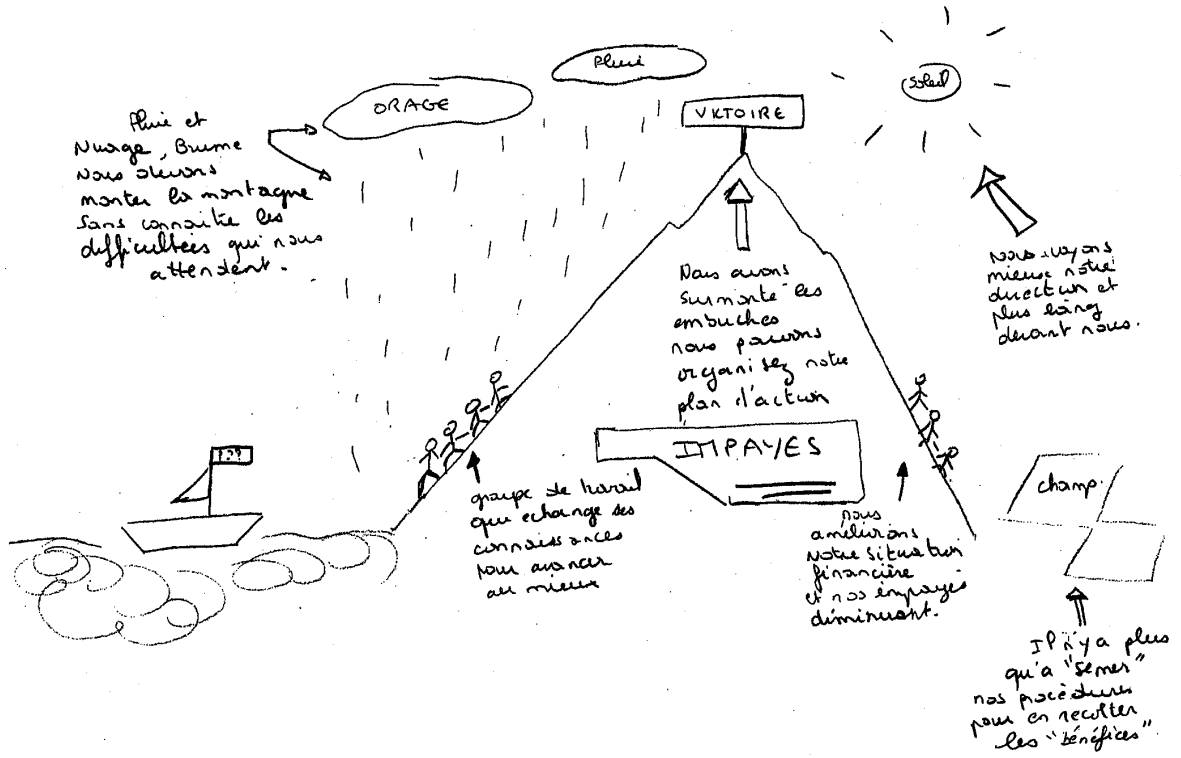 Pluie
Soleil
ORAGE
VICTOIRE
Pluie et
Nuage, Brume
nous devons
monter la montagne
sans connaitre les
difficultées qui nous
attendent.
Nous voyons
mieux notre
direction et
plus loing
devant nous.
Nous avons
surmonté les
embuches
nous pouvons
organisez notre
plan d'action
IMPAYES
???
champ.
groupe de travail
qui echange ses
connaissances
pour avancer
au mieux
nous
améliorons
notre situation
financière
et nos impayés
diminuent.
Il n'y a plus
qu'a "semer"
nos procédures
pour en recolter
les "bénéfices".